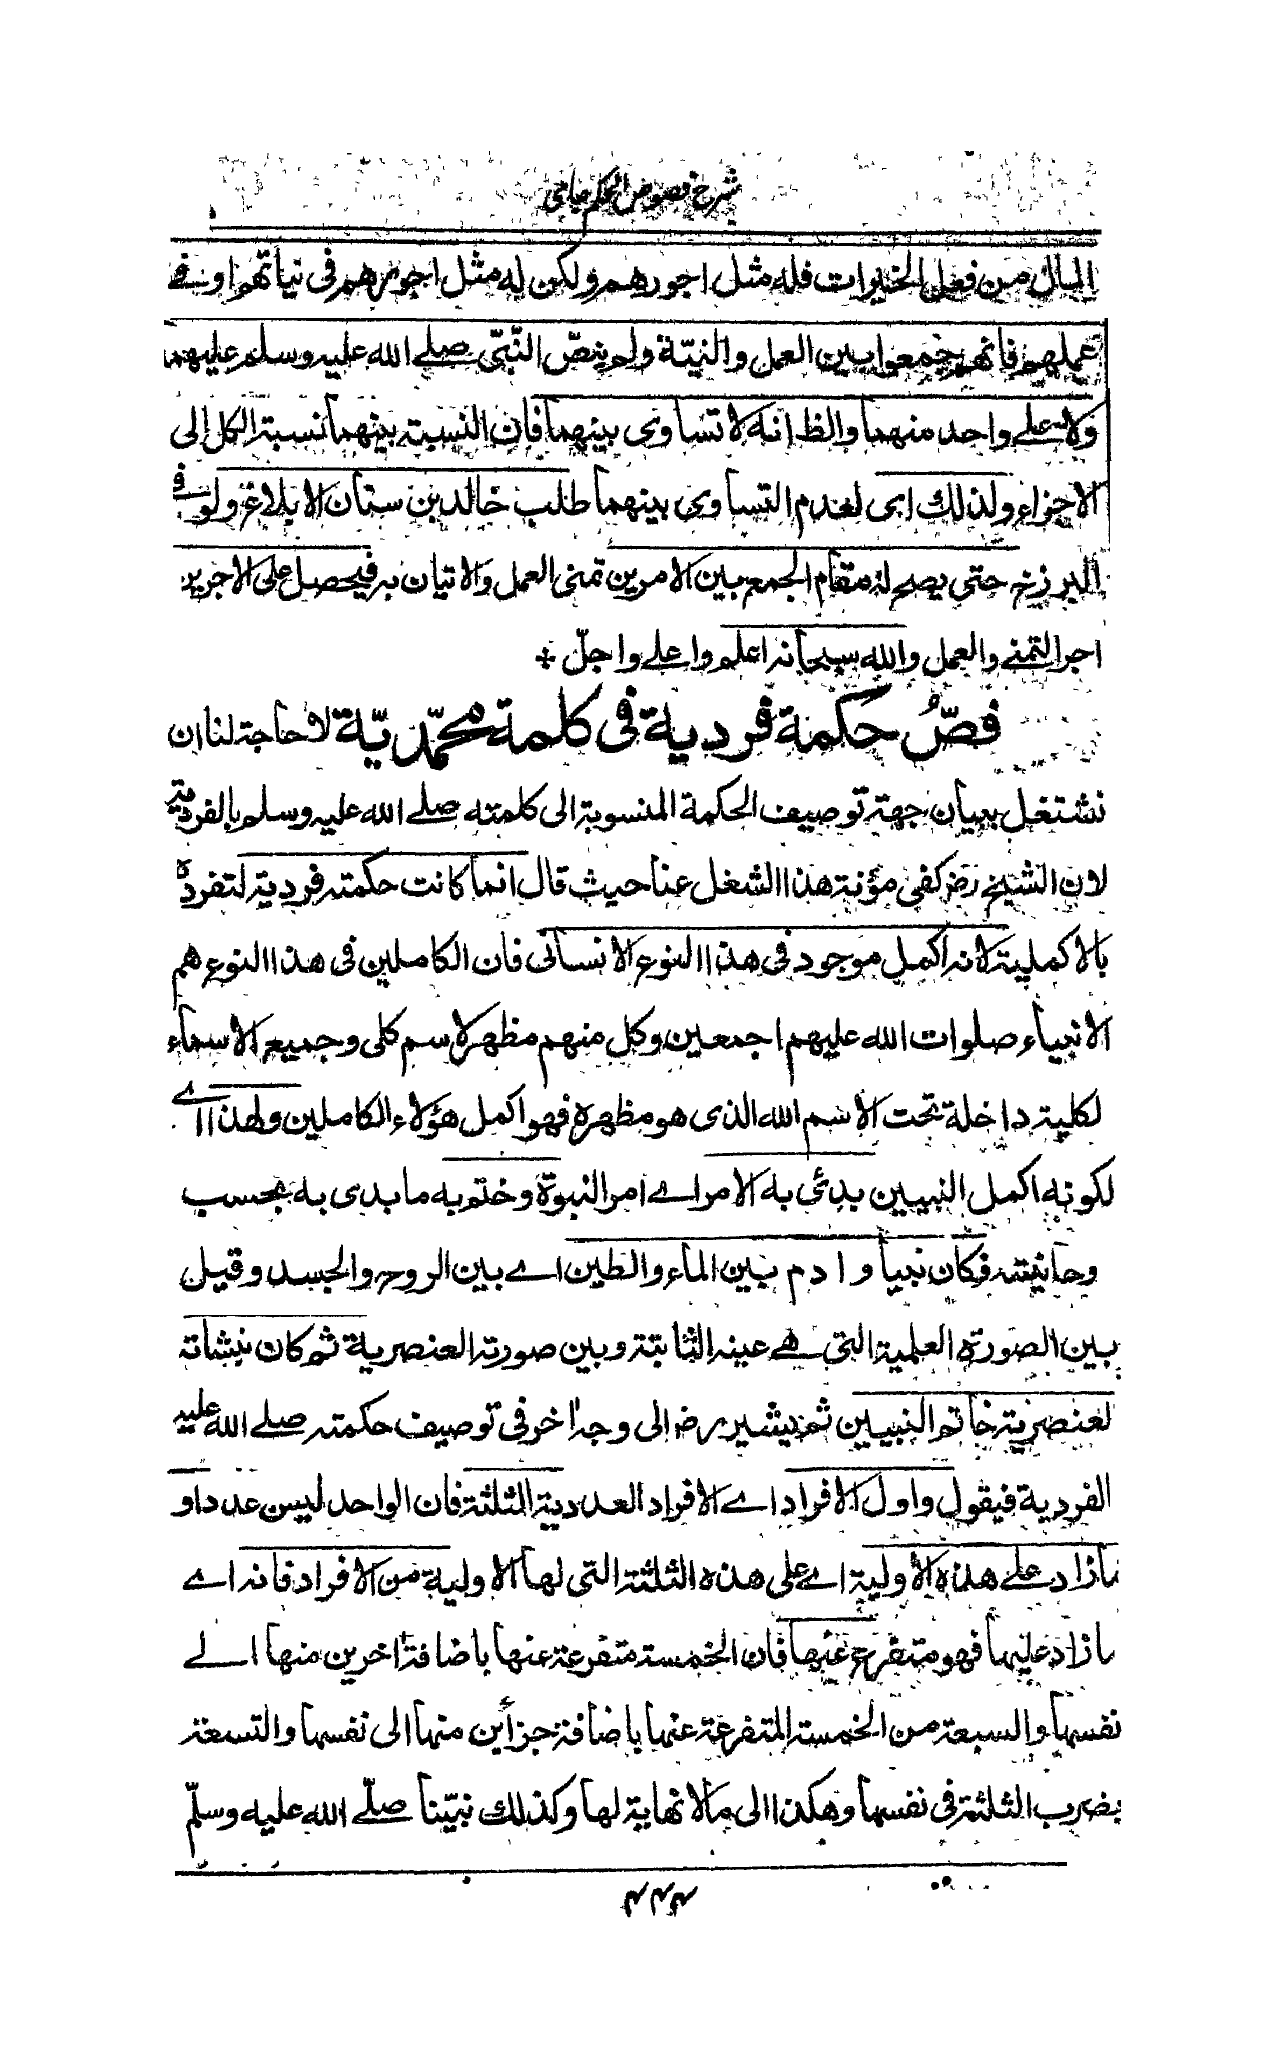 شرح فصوص الحكم جامی
المال من فعل الخيرات فله مثل اجورهم ولكن له مثل اجورهم فی نياتهم او فے
عملهم فانهم جمعوا بين العمل والنيّة ولم ينصّ النّبیّ صلے الله عليه وسلم عليهما
ولا علے واحد منهما والظ انه لا تساوی بينهما فان النسبته بينهما نسبة الكل الی
الاجزاء ولذلك ای لعدم التساوی بينهما طلب خالد بن سنان الابلاغ ولو فے
البرزخ حتی يصح له مقام الجمع بين الامرين تمنی العمل والاتيان به فيحصل علی الاجرين
اجر التمنے والعمل والله سبحانه اعلم واعلے واجلّ
فصّ حكمة فردية فی كلمة محمّديّة لا حاجة لنا ان
نشتغل ببيان جهة توصيف الحكمة المنسوبة الی كلمته صلے الله عليه وسلم بالفردية
لان الشيخ رضـ كفی مؤنة هذا الشغل عنا حيث قال انما كانت حكمته فردية لتفرده
بالاكملية لانه اكمل موجود فی هذا النوع الانسانی فان الكاملين فی هذا النوع هم
الانبياء صلوات الله عليهم اجمعين وكل منهم مظهر لاسم كلی وجميع الاسماء
لكلية داخلة تحت الاسم الله الذی هو مظهره فهو اكمل هؤلاء الكاملين ولهذا اے
لكونه اكمل النبيين بدئی به الامر اے امر النبوة وختم به ما بدی به بحسب
وحانيته فكان نبيا و ادم بين الماء والطين اے بين الروح والجسد وقيل
بين الصورة العلمية التی هے عينه الثابتة وبين صورته العنصرية ثم كان نبشاته
لعنصرية خاتم النبيين ثم يشير رضـ الی وجه اخر فی توصيف حكمته صلے الله عليه
الفردية فيقول واول الافراد اے الافراد العددية الثلثة فان الواحد ليس عددا و
مازاد علے هذه الاولية اے علی هذه الثلثة التی لها الاولية من الافراد فانه اے
مازاد عليها فهو متفرع عنها فان الخمسة متفرعة عنها باضافة اخرين منها الے
نفسها والسبعة من الخمسة المتفرعة عنها باضافة جزأين منها الی نفسها والتسعة
بضرب الثلثة فی نفسها وهكذا الی مالا نهاية لها وكذلك نبيّنا صلّے الله عليه وسلّم